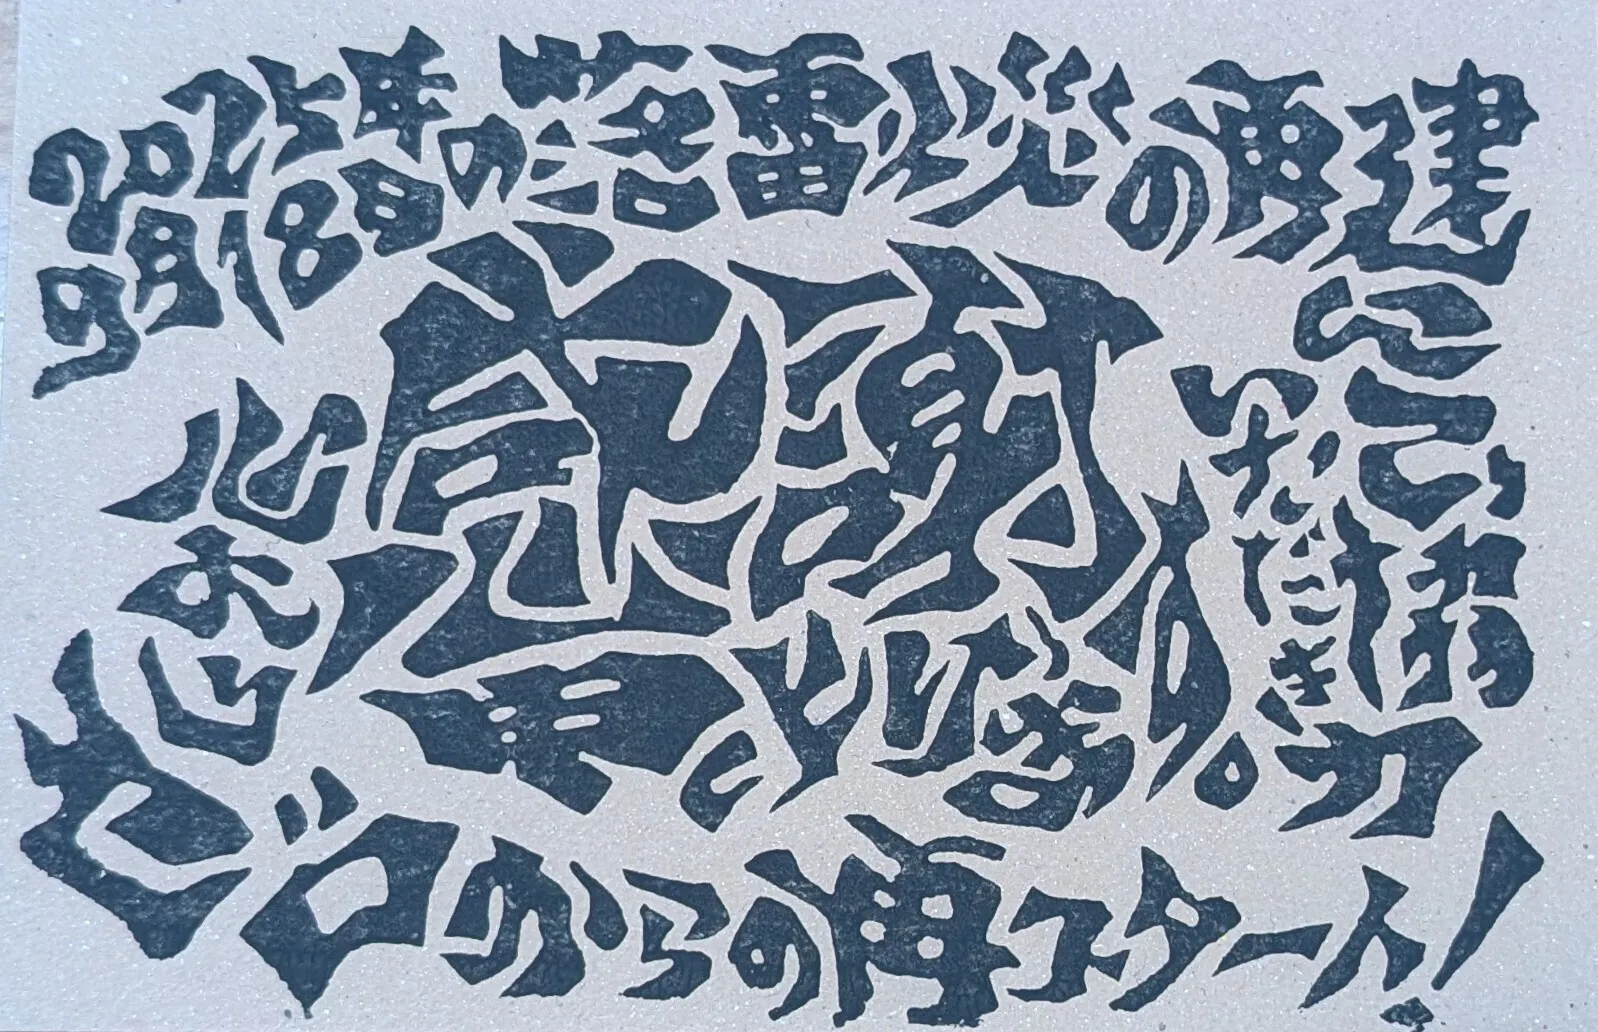 2025年の落雷火災の再建
9月18日
に
ご協力
いただき
心より
感謝
申し上げます。
ゼロからの再スタート!